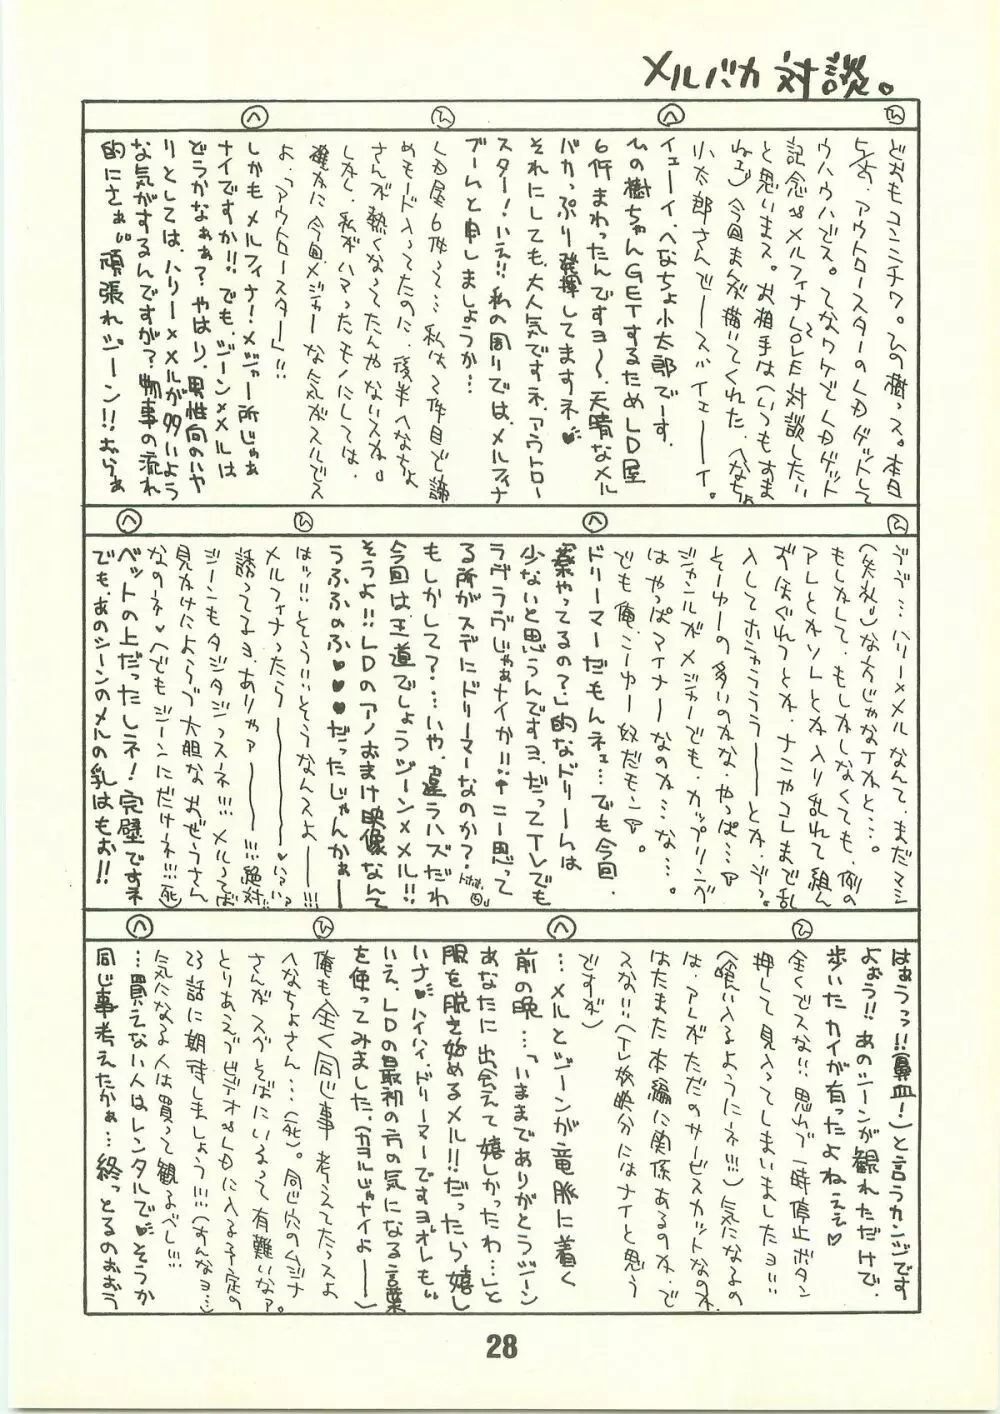 メルバカ対談。
ひ
どおもコンニチワ。ひの樹っス。本日
アウトロースターのLDゲットして
ウハウハでス。てなワケでLDゲット
記念 メルフィナLOVE対談したい
と思いまス。お相手は(いつもすま
ねェ)今回まんが描いてくれた、へなちょ
小太郎さんでーースハイェーーイ。
へ
イェーーイ、へなちょ小太郎でーす。
ひの樹ちゃんGETするためLD屋
6件まわったんですヨ〜、天晴なメル
バカっぷり発揮してますネ♥
それにしても、大人気ですネ、アウトロー
スター!いえ!!私の周りでは、メルフィナ
ブームと申しましょうか…
ひ
LD屋6件って…私は2件目で諦
めモード入ってたのに、後半へなちょ
さんが熱くなってたんやないスか。
しかし、私がハマったモノにしては、
確かに今回メジャーな気がスルでス
よ、「アウトロースター」!!
へ
しかもメルフィナ!メジャー所じゃぁ
ナイですか!!でも、ジーン×メルは
どうかなぁぁ?やはり、男性向のハヤ
リとしては、ハリー×メルが多いよう
な気がするんですが?物事の流れ
的にさぁ 頑張れジーン!!おらぁ
ひ
ううっ…ハリー×メルなんて、まだマシ
(失礼)な方じゃなけれと…。
もしかして、もしかしなくても、例の
アレとかソレとか入り乱れて組ん
ずほぐれつとか、ナニやコレまで乱
入してホニャラララーーとか、ぞっ。
そーゆーの多いのかな、やっぱ…
ジャンルがメジャーでも、カップリング
はやっぱマイナーなのか…な…。
でも俺、こーゆー奴だモン。
へ
ドリーマーだもんネェ…でも今回、
「薬やってるの?」的なドリームは
少ないと思うんですヨ、だってTVでも
ラヴラヴじゃぁナイか!!…と思って
る所がスデにドリーマーなのか?
もしかして?…いや、違うハズだわ
今回は王道でしょうジーン×メル!!
そうよ!!LDのアノおまけ映像なんて
うふふのふ♥♥♥だったじゃんかぁー
ひ
はッ!!そうい…そうなんスよーー!!!
メルフィナったらーーーー♥
誘ってるヨ、ありゃアーーー!!!絶対!!
ジーンもタジタジっスネ!!!メルってば
見かけによらず大胆な おぜうさん
なのーネ♥(でもジーンにだけネ!!!死)
へ
ベットの上だったしネ!完璧ですネ
でも、あのシーンのメルの乳はもぉ!!
はぁうっっ!!(鼻血!)と言うカンジです
よおう!!あのシーンが観れただけで、
歩いたカイが有ったよねえぇ♡
ひ
全くでスな!!!思わず一時停止ボタン
押して見入ってしまいましたヨ!!
(喰い入るようにーネ!!!)気になるの
は、アレがただのサービスカットなのか、
はたまた本編に関係あるのか、で
スな!!(TV放映分にはナイと思う
ですが)
へ
…メルとジーンが竜脈に着く
前の晩…「いままでありがとうジーン
あなたに出会えて嬉しかったわ…」と
服を脱ぎ始めるメル!!!だったら嬉し
いナ♥ハイハイ、ドリーマーですヨ、オレも
いえ、LDの最初の方の気になる言葉
を使ってみました、(カヨルじゃナイよーー)
ひ
俺も全く同じ事 考えてたっスよ
へなちょさん…(死)。同じ穴のムジナ
さんがスぐそばにいるって有難いなァ。
とりあえずビデオ LDに入る予定の
23話に期待しましょう!!!(すんなヨ…)
気になる人は買って観るべし!!!
へ
…買えない人はレンタルで♥そうか
同じ事考えたかぁ…終っとるのおおう
28